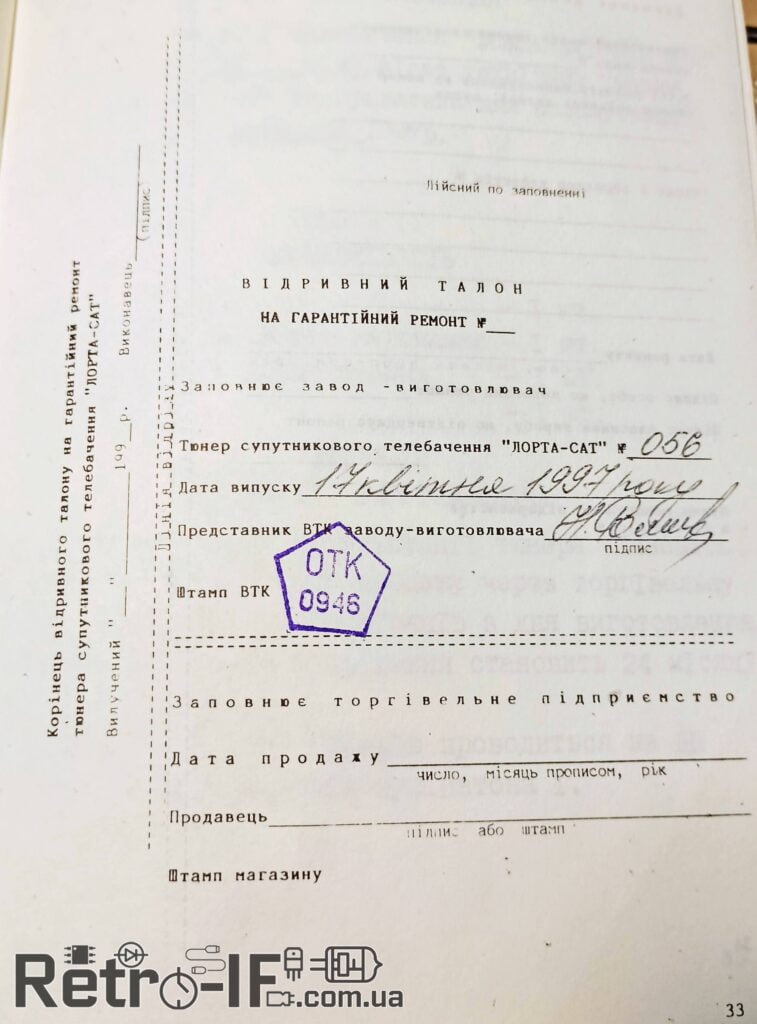 Корінець відривного талону на гарантійний ремонт
тюнера супутникового телебачення "ЛОРТА-САТ"
Вилучений "___"________199__р. Виконавець________
(підпис)
Лінія відрізу
Дійсний по заповненні
ВІДРИВНИЙ ТАЛОН
НА ГАРАНТІЙНИЙ РЕМОНТ №___
Заповнює завод -виготовлювач
Тюнер супутникового телебачення "ЛОРТА-САТ" № 056
Дата випуску 17 квітня 1997 року
Представник ВТК заводу-виготовлювача
підпис
Штамп ВТК
ОТК
0946
Заповнює торгівельне підприємство
Дата продажу
число, місяць прописом, рік
Продавець
підпис або штамп
Штамп магазину
Retro-IF
.com.ua
33